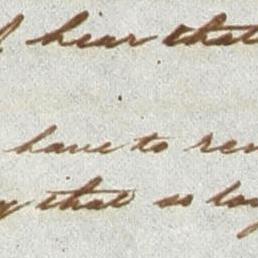 I hear that
have to ren
y that so log